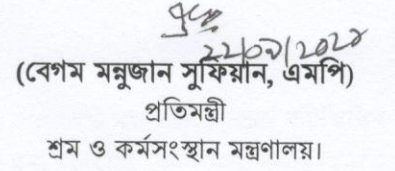 22/09/2020
(বেগম মন্নুজান সুফিয়ান, এমপি)
প্রতিমন্ত্রী
শ্রম ও কর্মসংস্থান মন্ত্রণালয়।